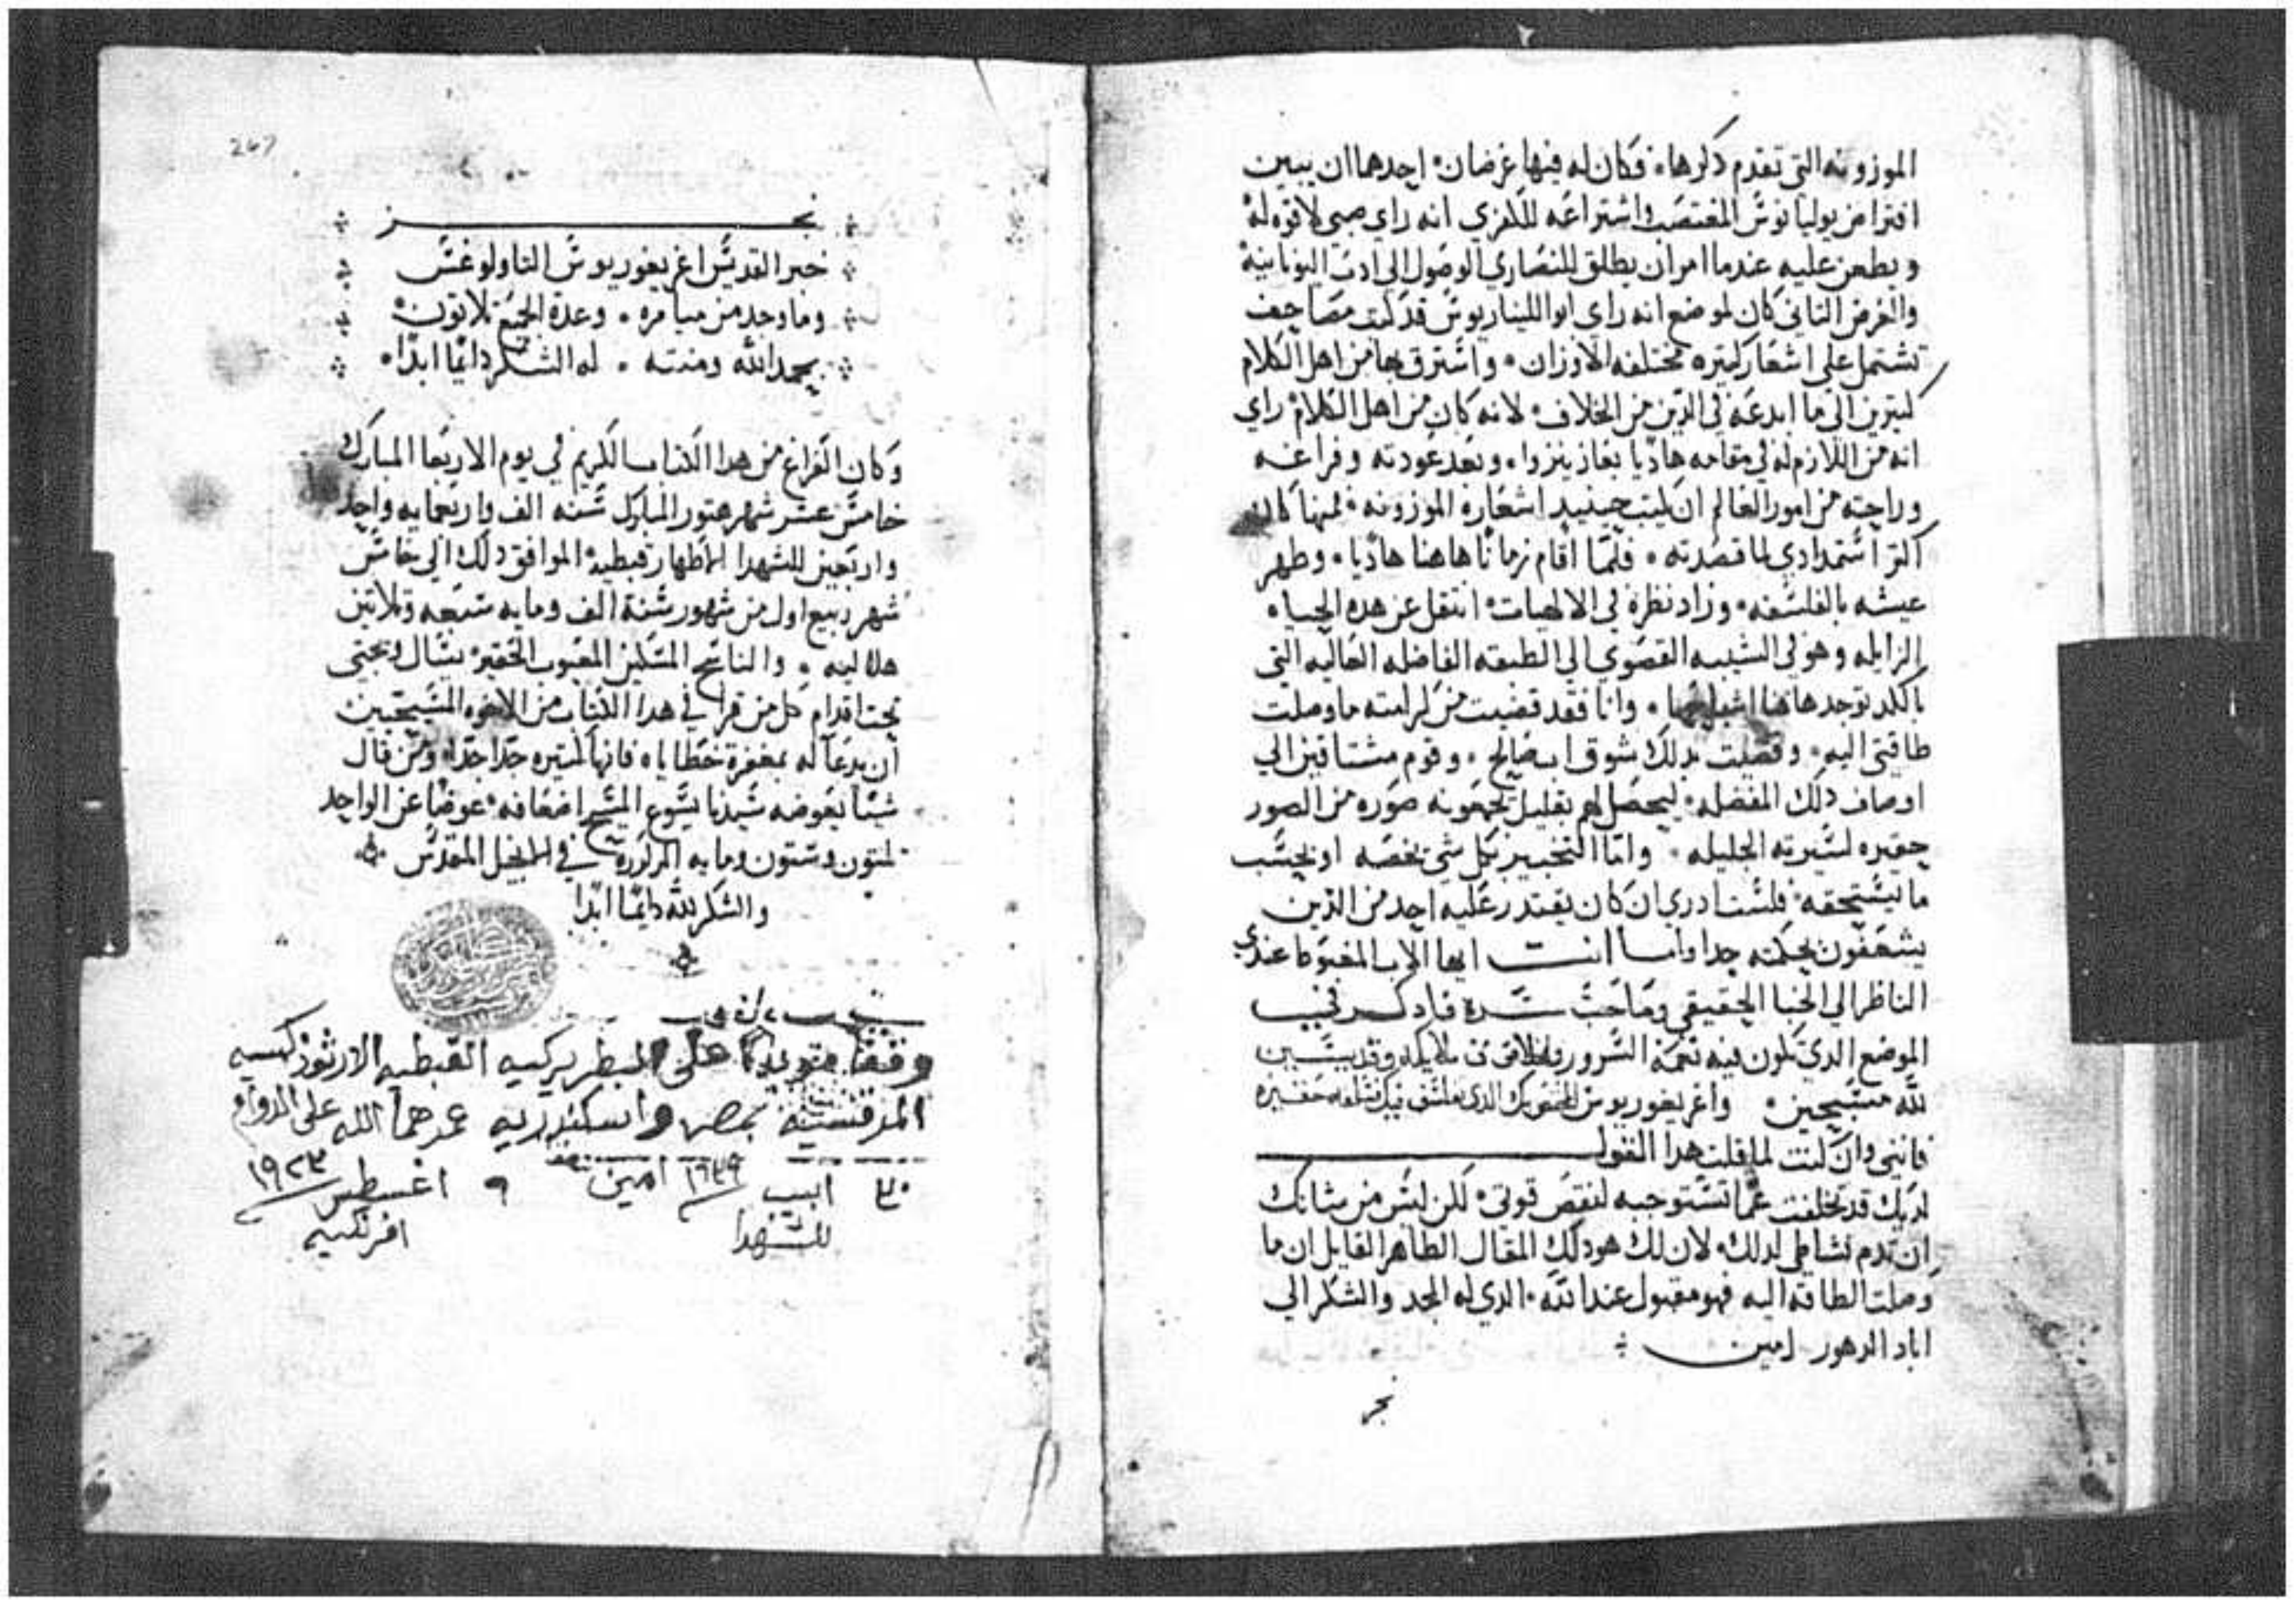 الموزونه التي تقدم ذكرها. فكان له فيها غرضان. احدهما ان يبين
افتراض يوليانوس المغتصب واشتراعه للكفري انه راي صبي لا قوه له
ويطعن عليه عندما امر ان يطلق للنصاري الوصول الي ادب اليونانيه
والغرض التاني كان لموضع انه راي ابولليناريوس قد كتب مصاحف
تشتمل علي اشعار كتيره مختلفه الاوزان. واسترق بها من اهل الكلام
كتيرين الي ما ابدعه في الدين من الخلاف. لانه كان من اهل الكلام راي
انه من اللازم له في مقامه هاديا بغازينزوا. وبعد عودته وفراغه
وراحته من امور العالم ان كتب حينيد اشعاره الموزونه. فمنها كان
اكتر استمدادي لما قصدته. فلما اقام زمانا هاهنا هاديا. وطهر
عيشه بالفلسفه. وزاد نظره في الالهيات. انتقل عن هده الحياه
الزايله وهو في الشيبه القصوي الي الطبقه الفاضله العاليه التي
بالكد توجد هاهنا اشباحها. وانا فقد قضيت من كرامته ما وصلت
طاقتي اليه. وقضيت بدلك شوق اب صالح. وقوم مشتاقين الي
اوصاف دلك المفضله. ليحصل لهم بقليل تجمعونه صوره من الصور
حقيره لسيرته الجليله. واما التخبير بكل شي يخصه او بحسب
ما يستحقه. فلست ادري ان كان يقتدر عليه احد من الدين
يشغفون بحكمته جدا واما انت ايها الاب المغبوط عندي
الناظر الي الخبا الحقيقي وصاحب سره فادكر نحيب
الموضع الدي تكون فيه نغمة السرور ملايكه وقديسين
لله مسبحين. واغريغوريوس
فانني وان كنت لما قلت هدا القول
لديك قد تخلفت عما تستوجبه لنقص قوتي. لكن ليس من شانك
ان تدم نشاطي لدلك. لان لك هو دلك المقال الطاهر القايل ان ما
وصلت الطاقه اليه فهو مقبول عند الله. الدي له المجد والشكر الي
اباد الدهور امين
نجز
267
نجز
خبر القديس اغريغوريوس التاولوغس
وما وجد من ميامره. وعدة الجميع تلاتون.
بحمد الله ومنته. له الشكر دايما ابدا.
وكان الفراغ من هدا الكتاب الكريم في يوم الاربعا المبارك
خامس عشر شهر هتور المبارك سنه الف واربعمايه واحد
واربعين للشهدا الاطهار قبطيه الموافق دلك الي خامس
شهر ربيع اول من شهور سنة الف ومايه سبعه وتلاتين
هلاليه. والناسخ المسكين المعيوب الحقير يسال وينحني
تحت اقدام كل من قرا في هدا الكتاب من الاخوه المسيحيين
ان يدعا له بمغفرة خطاياه فانها كتيره جدا جدا. ومن قال
شيا يعوضه سيدنا يسوع المسيح اضعافه. عوضا عن الواحد
تلتون وستون ومايه المدكوره في الانجيل المقدس
والشكر لله دايما ابدا
وقفا مؤبدا على البطريركيه القبطيه الارثوذكسيه
المرقسيه بمصر واسكندريه عمرهما الله على الدوام
٣٠ ابيب ١٦٣٩ امين ٩ اغسطس ١٩٢٣
للشهدا افرنكيه